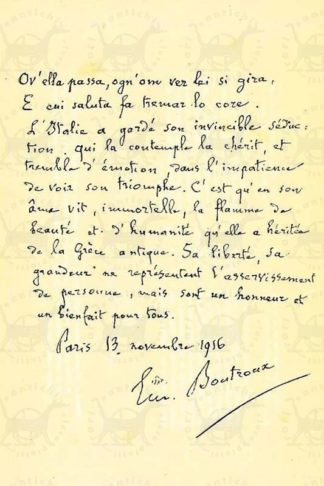 Ov'ella passa, ogn'om ver lei si gira,
E cui saluta fa tremar lo core.
L'Italie a gardé son invincible séduc-
tion. qui la contemple la chérit, et
tremble d'émotion dans l'impatience
de voir son triomphe. C'est qu'en son
âme vit, immortelle, la flamme de
beauté et d'humanité qu'elle a héritée
de la Grèce antique. Sa liberté, sa
grandeur ne représentent l'asservissement
de personne, mais sont un honneur et
un bienfait pour tous.
Paris 13 novembre 1916
Ém. Boutroux